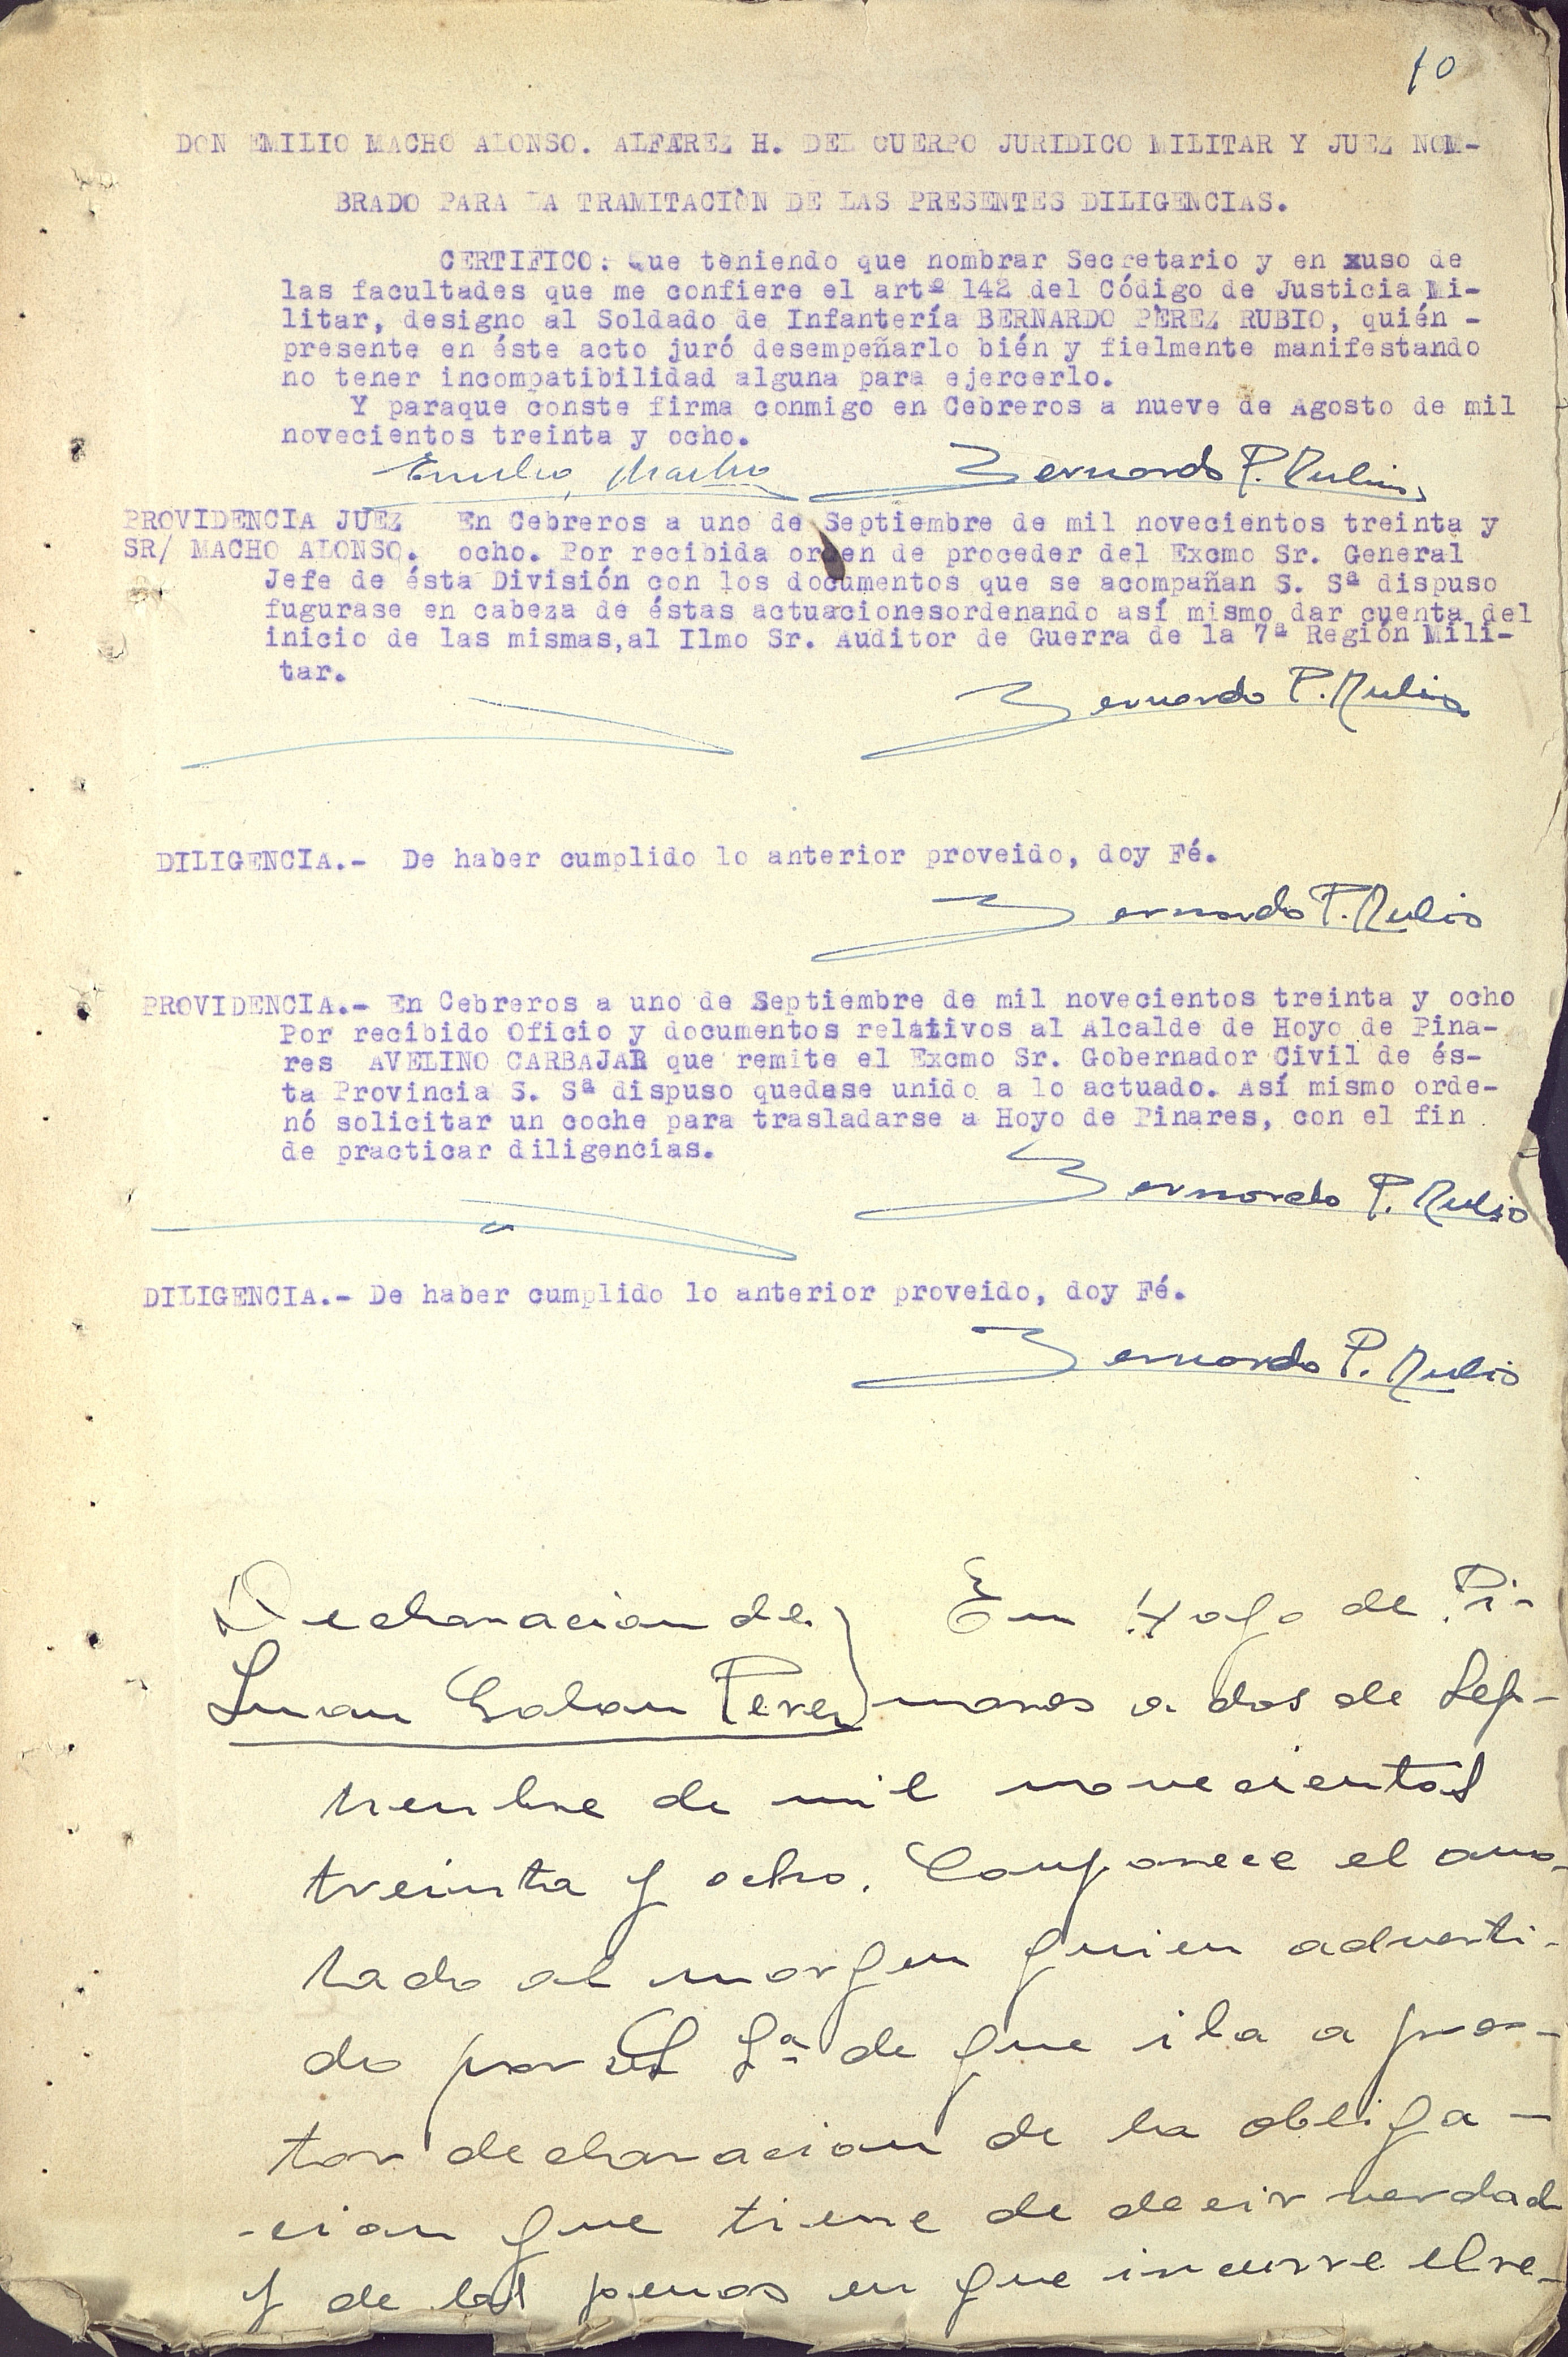 10
DON EMILIO MACHO ALONSO. ALFAREZ H. DEL CUERPO JURIDICO MILITAR Y JUEZ NOM-
BRADO PARA LA TRAMITACIÒN DE LAS PRESENTES DILIGENCIAS.
CERTIFICO: Que teniendo que nombrar Secretario y en xuso de
las facultades que me confiere el artº 142 del Código de Justicia Mi-
litar, designo al Soldado de Infantería BERNARDO PÈREZ RUBIO, quién -
presente en éste acto juró desempeñarlo bién y fielmente manifestando
no tener incompatibilidad alguna para ejercerlo.
Y paraque conste firma conmigo en Cebreros a nueve de Agosto de mil
novecientos treinta y ocho.
Emilio Macho Bernardo P. Rubio
PROVIDENCIA JUEZ En Cebreros a uno de Septiembre de mil novecientos treinta y
SR/ MACHO ALONSO. ocho. Por recibida orden de proceder del Excmo Sr. General
Jefe de ésta División con los documentos que se acompañan S. Sª dispuso
fugurase en cabeza de éstas actuacionesordenando así mismo dar cuenta del
inicio de las mismas,al Ilmo Sr. Auditor de Guerra de la 7ª Región Mili-
tar.
Bernardo P. Rubio
DILIGENCIA.- De haber cumplido lo anterior proveido, doy Fé.
Bernardo P. Rubio
PROVIDENCIA.- En Cebreros a uno de Septiembre de mil novecientos treinta y ocho
Por recibido Oficio y documentos relativos al Alcalde de Hoyo de Pina-
res AVELINO CARBAJAR que remite el Excmo Sr. Gobernador Civil de és-
ta Provincia S. Sª dispuso quedase unido a lo actuado. Así mismo orde-
nó solicitar un coche para trasladarse a Hoyo de Pinares, con el fin
de practicar diligencias.
Bernardo P. Rubio
DILIGENCIA.- De haber cumplido lo anterior proveido, doy Fé.
Bernardo P. Rubio
Declaracion de En Hoyo de Pi-
Juan Galan Perez nares a dos de Sep-
tienbre de mil novecientos
treinta y ocho. Comparece el ano-
tado al margen quien adverti-
do por S Sª de que iba a pres-
tar declaracion de la obliga-
-cion que tiene de decir verdad
y de las penas en que incurre el re-